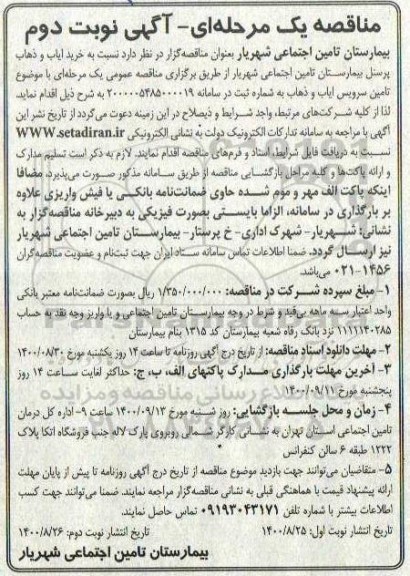 مناقصه یک مرحله‌ای- آگهی نوبت دوم
بیمارستان تامین اجتماعی شهریار بعنوان مناقصه‌گزار در نظر دارد نسبت به خرید ایاب و ذهاب
پرسنل بیمارستان تامین اجتماعی شهریار از طریق برگزاری مناقصه عمومی یک مرحله‌ای با موضوع
تامین سرویس ایاب و ذهاب به شماره ثبت در سامانه ۲۰۰۰۰۰۵۴۸۵۰۰۰۰۱۹ به شرح ذیل اقدام نماید.
لذا از کلیه شرکت‌های مرتبط، واجد شرایط و ذیصلاح در این زمینه دعوت می‌گردد از تاریخ نشر این
آگهی با مراجعه به سامانه تدارکات الکترونیک دولت به نشانی الکترونیکی WWW.setadiran.ir
نسبت به دریافت فایل شرایط، اسناد و فرم‌های مناقصه اقدام نمایند. لازم به ذکر است تسلیم مدارک
و ارائه پاکت‌ها و کلیه مراحل بازگشایی مناقصه از طریق سامانه مذکور صورت می‌پذیرد. مضافا
اینکه پاکت الف مهر و موم شده حاوی ضمانت‌نامه بانکی یا فیش واریزی علاوه
بر بارگذاری در سامانه، الزاما بایستی بصورت فیزیکی به دبیرخانه مناقصه‌گزار به
نشانی: شهریار- شهرک اداری- خ پرستار- بیمارستان تامین اجتماعی شهریار
نیز ارسال گردد. ضمنا اطلاعات تماس سامانه ستاد ایران جهت ثبت‌نام و عضویت مناقصه‌گران
۰۲۱-۱۴۵۶ می‌باشد.
۱- مبلغ سپرده شرکت در مناقصه: ۱/۳۵۰/۰۰۰/۰۰۰ ریال بصورت ضمانت‌نامه معتبر بانکی
واجد اعتبار سه ماهه بی‌قید و شرط در وجه بیمارستان تامین اجتماعی و یا واریز وجه نقد به حساب
۱۱۱۱۱۴۰۲۸۵ نزد بانک رفاه شعبه بیمارستان کد ۱۳۱۵ بنام بیمارستان
۲- مهلت دانلود اسناد مناقصه: از تاریخ درج آگهی روزنامه تا ساعت ۱۴ روز یکشنبه مورخ ۱۴۰۰/۰۸/۳۰
۳- آخرین مهلت بارگذاری مدارک پاکتهای الف، ب، ج: حداکثر لغایت ساعت ۱۴ روز
پنجشنبه مورخ ۱۴۰۰/۰۹/۱۱
۴- زمان و محل جلسه بازگشایی: روز شنبه مورخ ۱۴۰۰/۰۹/۱۳ ساعت ۹- اداره کل درمان
تامین اجتماعی استان تهران به نشانی کارگر شمالی روبروی پارک لاله جنب فروشگاه اتکا پلاک
۱۲۲۲ طبقه ۶ سالن کنفرانس
۵- متقاضیان می‌توانند جهت بازدید موضوع مناقصه از تاریخ درج آگهی روزنامه تا پیش از پایان مهلت
ارائه پیشنهاد قیمت با هماهنگی قبلی به نشانی مناقصه‌گزار مراجعه نمایند. ضمنا می‌توانند جهت کسب
اطلاعات بیشتر با شماره تلفن ۰۹۱۹۳۰۴۳۱۷۱ تماس حاصل نمایند.
تاریخ انتشار نوبت اول: ۱۴۰۰/۸/۲۵ تاریخ انتشار نوبت دوم: ۱۴۰۰/۸/۲۶
بیمارستان تامین اجتماعی شهریار